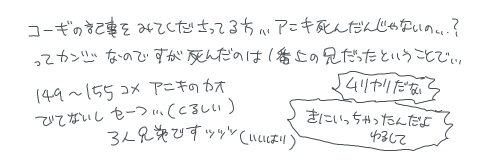 コーギの記事をみてくださってる方... アニキ死んだんじゃないの...?
ってカンジ なのですが死んだのは1番上の兄だったということで...
149〜155コメ アニキのカオ
でてないし セーフ...(くるしい)
3人兄弟ですッッッ(いいはり)
ムリやりだな
きにいっちゃったんだよ
ゆるして